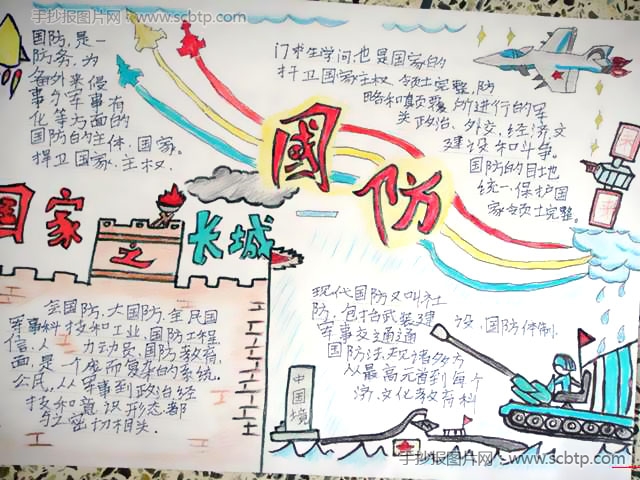 手抄报图片网 - www.scbtp.com
国防,是一
防务,为
备外来侵
事尔军事有
化等方面的
国防的主体,国家。
捍卫国家、主权.
门求生学问也是国家的
捍卫国家主权,领土完整,防
略和颠覆,所进行的军
类政治、外交,经济,文
建设和斗争。
国防的目地
统一保护国
家领土完整。
國防
国家之长城
全国防、大国防、全民国
军事科技和工业,国防工程
信,人 力动员,国防教育,
面,是一个
的系统。
公民,从军事到政治经
技和意识形态都
密切相关.
现代国防又叫社
防,包括武装建 设,国防体制,
军事交通通
国防法规诸多方
从最高元首到每个
济,文化教育科
中国境
手抄报图片网 - www.scbtp.com